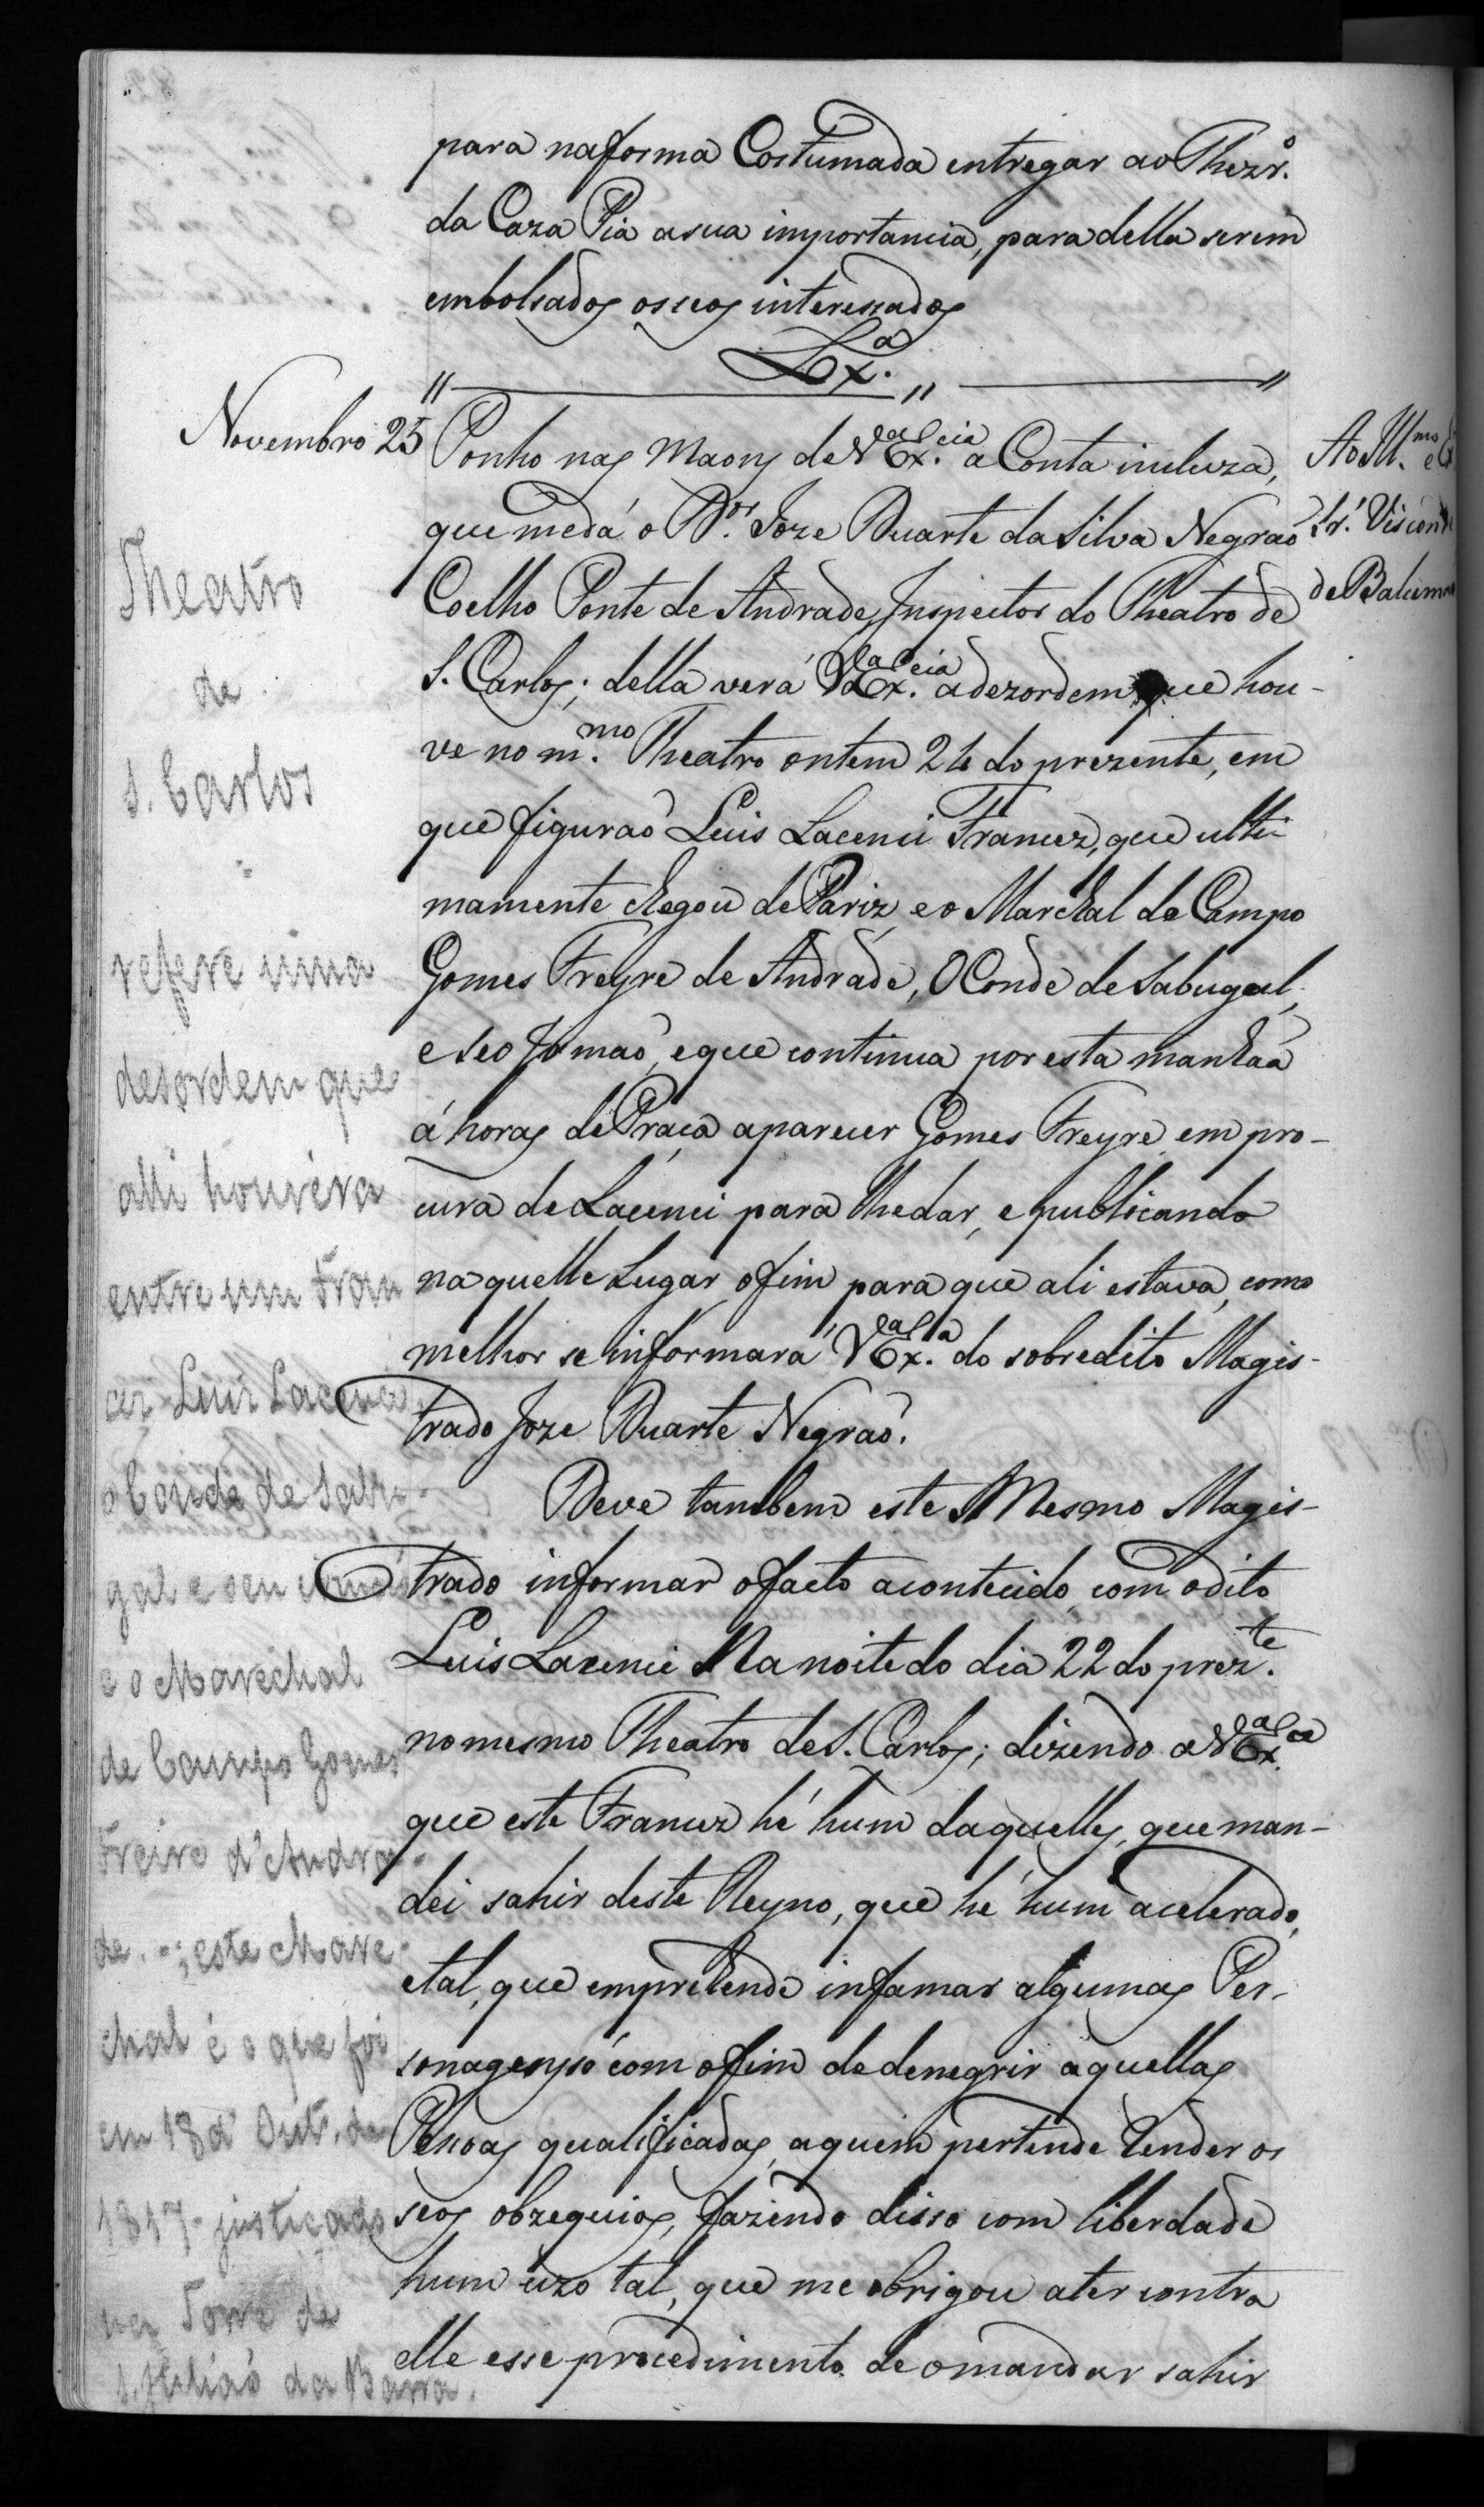 para naforma Costumada entregar ao Thezr.º
da Caza Pia asua importancia, para della serem
embolsados osseos interessados
Lx.ª
Novembro 25
Ponho nas maons de V Ex.cia a Conta incluza,
que medá o D.or Joze Duarte da Silva Negraõ
Coelho Ponte de Andrade, Inspector do Theatro de
S. Carlos; della verá V Ex.cia adezordem que hou-
ve no m.mo Theatro ontem 24 do prezente, em
que figuraõ Luis Lacenci Francez, que ulti-
mamente chegou de Pariz, e o Marchal de Campo
Gomes Freyre de Andrade, O Conde de Sabugal,
e seo Irmaõ, e que continua por esta manhaã
á horas de Praça aparecer Gomes Freyre em pro-
cura de Lacenci para lhedar, e publicando
naquelle Lugar ofim para que ali estava, como
melhor se informará V Ex.ª do sobredito Magis-
trado Joze Duarte Negraõ.
Deve tambem este Mesmo Magis-
trado informar ofacto acontecido com odito
Luis Lacenci Na noite do dia 22 do prez.te
nomesmo Theatro de S. Carlos; dizendo a V Ex.ca
que este Francez hé hum daquelles, que man-
dei sahir deste Reyno, que hé hum acelerado,
etal, que emprehende infamar algumas Per-
sonagens só com ofim de denegrir aquellas
Pessoas qualificadas, aquem pertende Render os
seos obzequios, fazendo disso com liberdade
hum uzo tal, que me obrigou ater contra
elle esse procedimento de omandar sahir
Ao Ill.mo e E
Sr. Viscond
de Balsem
Theatro
de
S. Carlos
"
refere uma
desordem que
alli houvéra
entre um Fran
cez Luiz Lacenci
o Conde de Sabu-
gal e seu irmaõ
e o Marechal
de Campo Gomes
Freire d'Andra-
de. -; este Mare-
chal é o que foi
em 18 d' Out. de
1817 justiçado
na Torre de
S. Juliaõ da Barra.